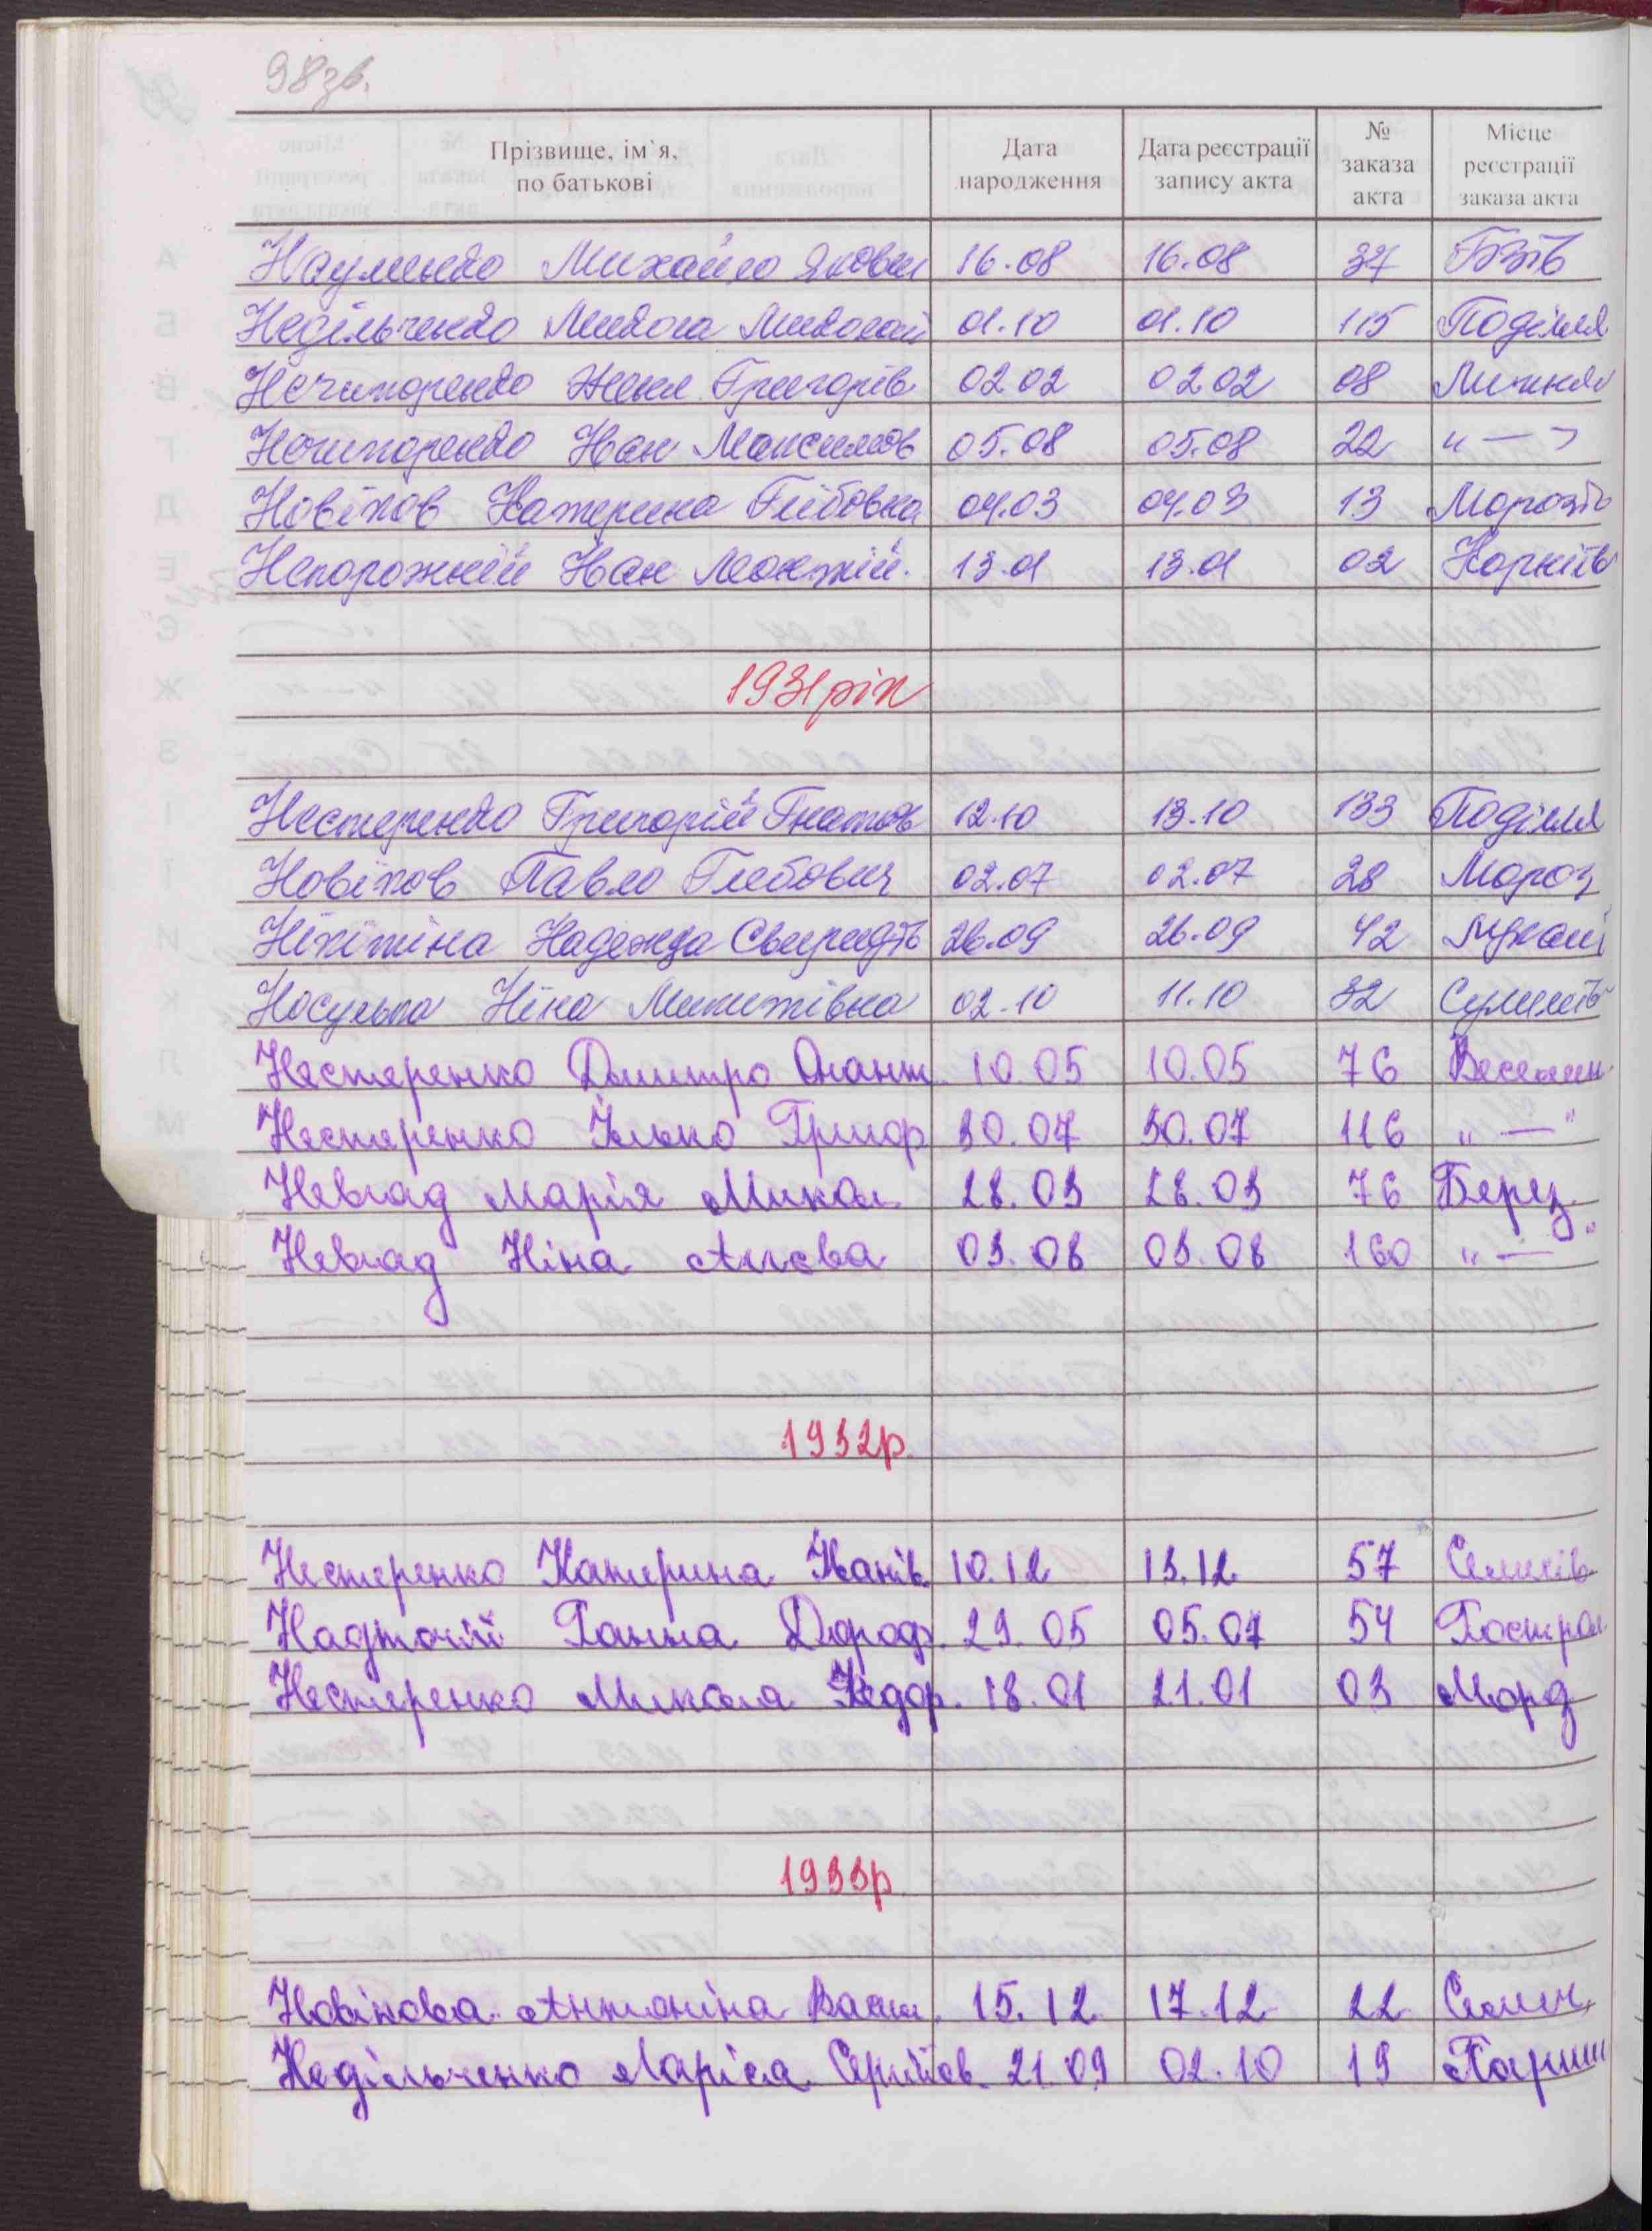 98зв.
Прізвище, ім`я, по батькові Дата народження Дата реєстрації запису акта № заказа акта Місце реєстрації заказа акта
Науменко Михайло Яковл 16.08 16.08 37 Бзів
Недільченко Микола Миколай 01.10 01.10 115 Поділля
Нечипоренко Женя Григорів 02 02 02 02 08 Личнян
Нечипоренко Іван Максимов 05.08 05.08 22 "—"
Новіков Катерина Глібовна 04.03 04.03 13 Морозів
Непорожній Іван Леонтій. 13.01 13.01 02 Корніїв
1931рік
Нестеренко Григорій Гнатов 12.10 13.10 133 Поділля
Новіков Павло Глебович 02.07 02.07 28 Мороз
Нікітіна Надежда Свиридів 26.09 26.09 42 Лукаші
Носулька Ніна Микитівна 02.10 11.10 32 Сулимів
Нестеренко Дмитро Опант. 10.05 10.05 76 Веселин.
Нестеренко Ілько Григор 30.07 30.07 116 "—"
Невгад Марія Микол. 28.03 28.03 76 Берез.
Невгад Ніна 03.08 03.08 160 "—"
1932р.
Нестеренко Катерина Іванів. 10.12 13.12 57 Селихів
Надточій Ганна Дороф. 29.05 05.07 54 Гостро
Нестеренко Микола Федор. 18.01 21.01 03 Морд
1933р.
Новікова Антоніна Васил. 15.12 17.12 22 Селич
Недільченко Ларіса Сергіїв. 21.09 02.10 19 Паришк